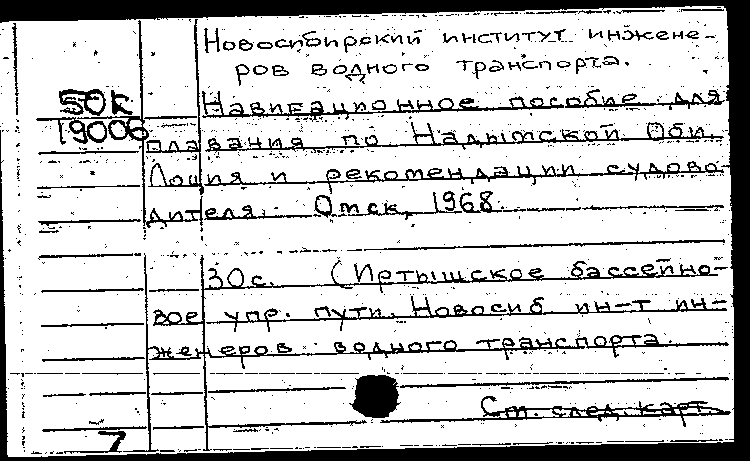 Новосибирский институт инжене-
ров водного транспорта.
50к Навигационное пособие для
19006 плавания по Надымской Оби.
Лоция и рекомендации судово-
дителя. Омск, 1968.
30с. (Иртышское бассейно-
вое упр. пути. Новосиб ин-т ин-
женеров водного транспорта.
См. след. карт.
7